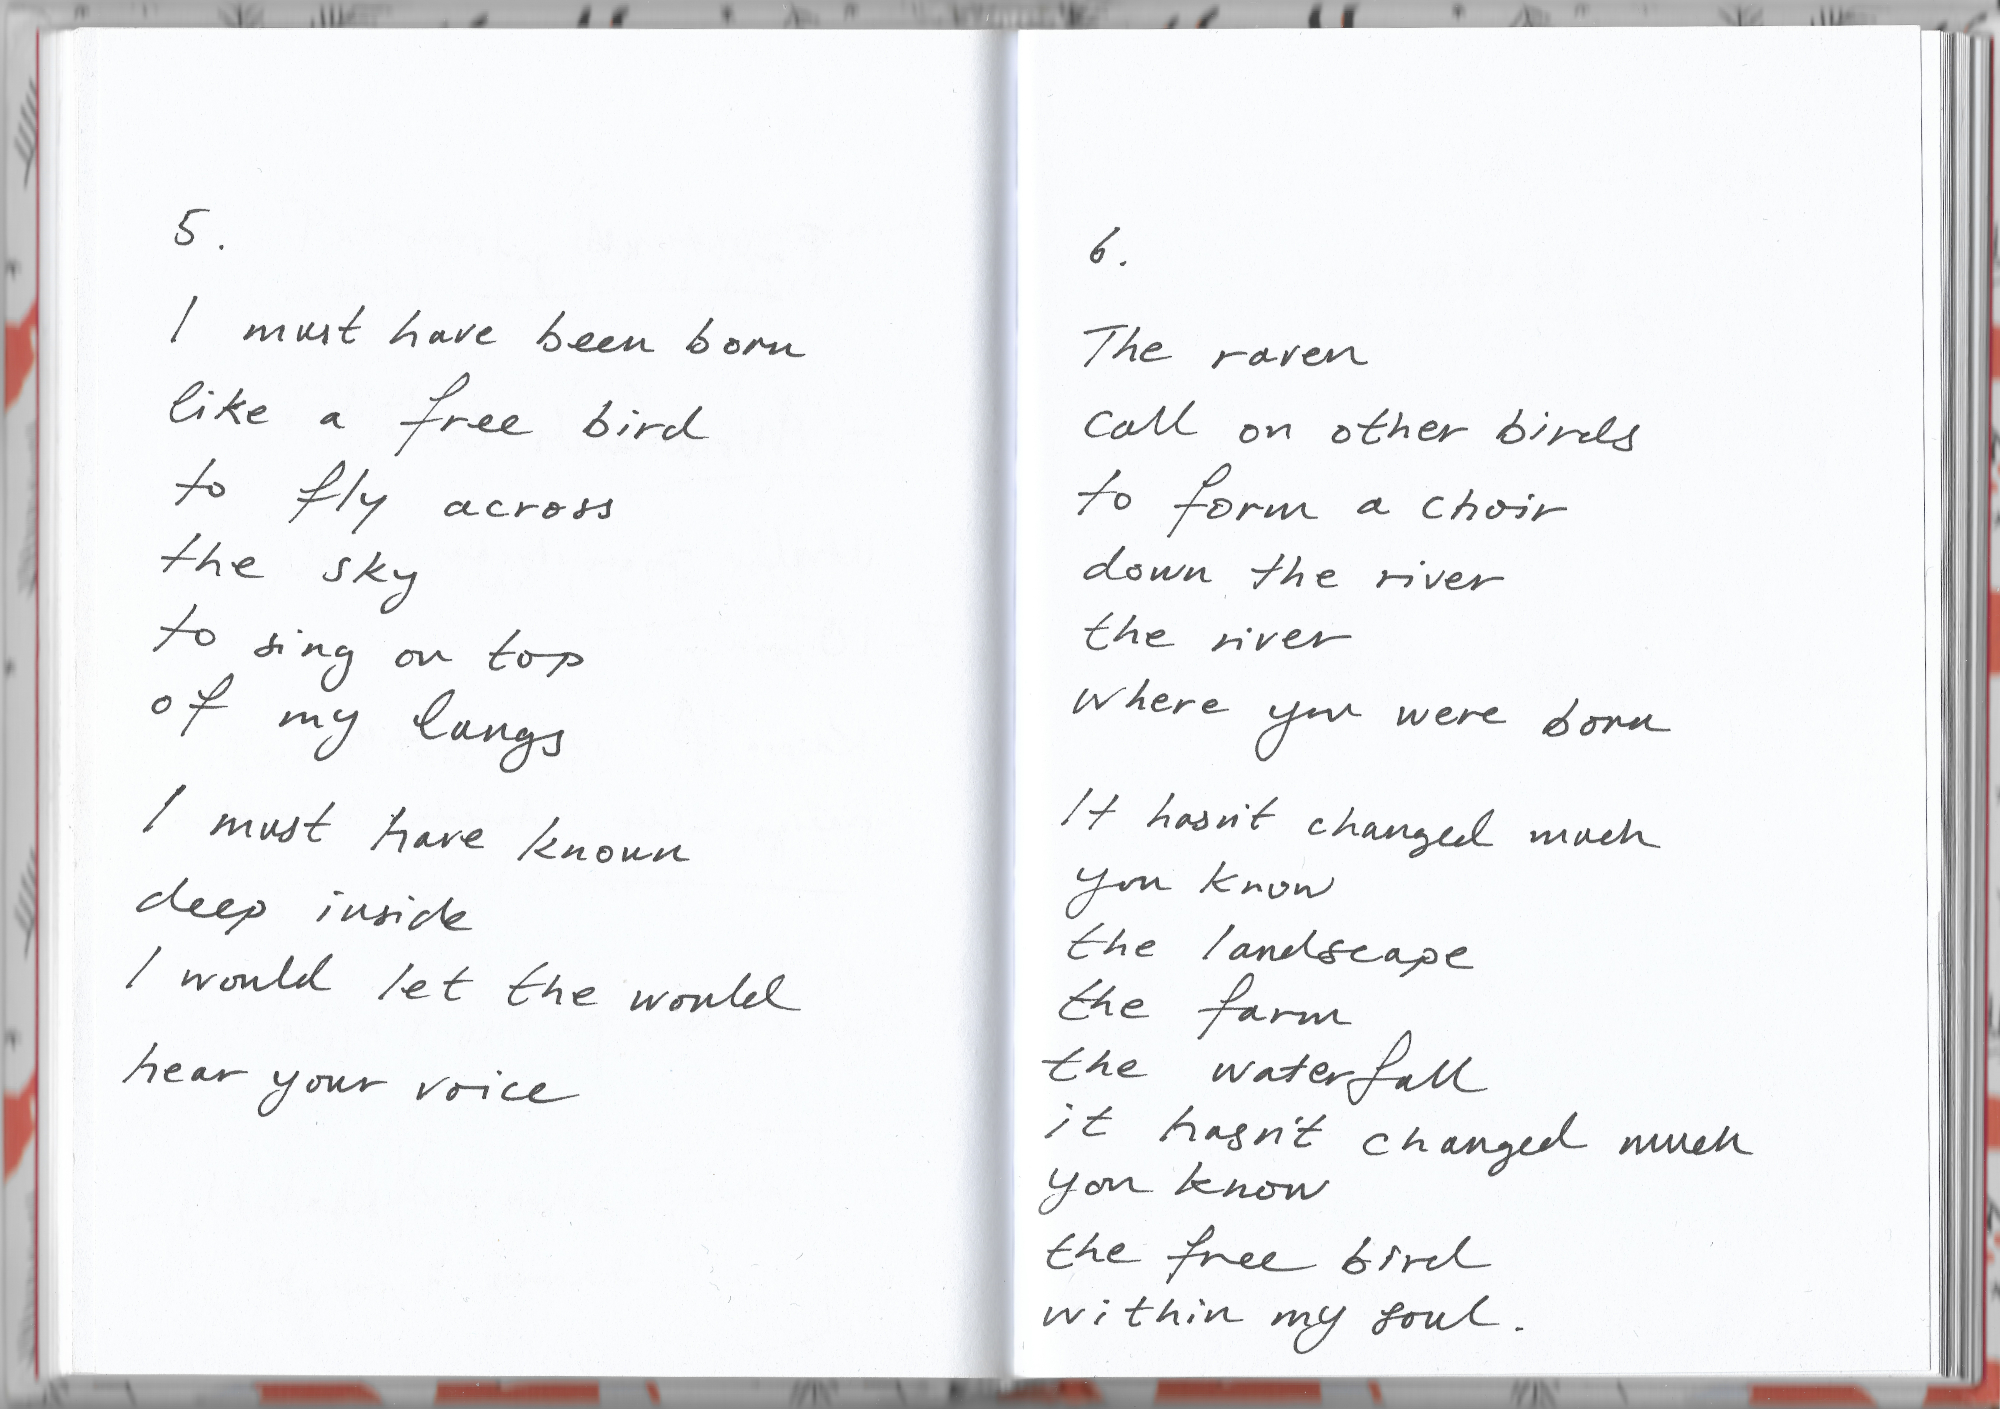 5.
I must have been born
like a free bird
to fly across
the sky
to sing on top
of my langs
I must have known
deep inside
I would let the would
hear your voice
6.
The raven
call on other birds
to form a choir
down the river
the river
where you were born
It hasn't changed much
you know
the landscape
the farm
the waterfall
it hasn't changed much
you know
the free bird
within my soul.